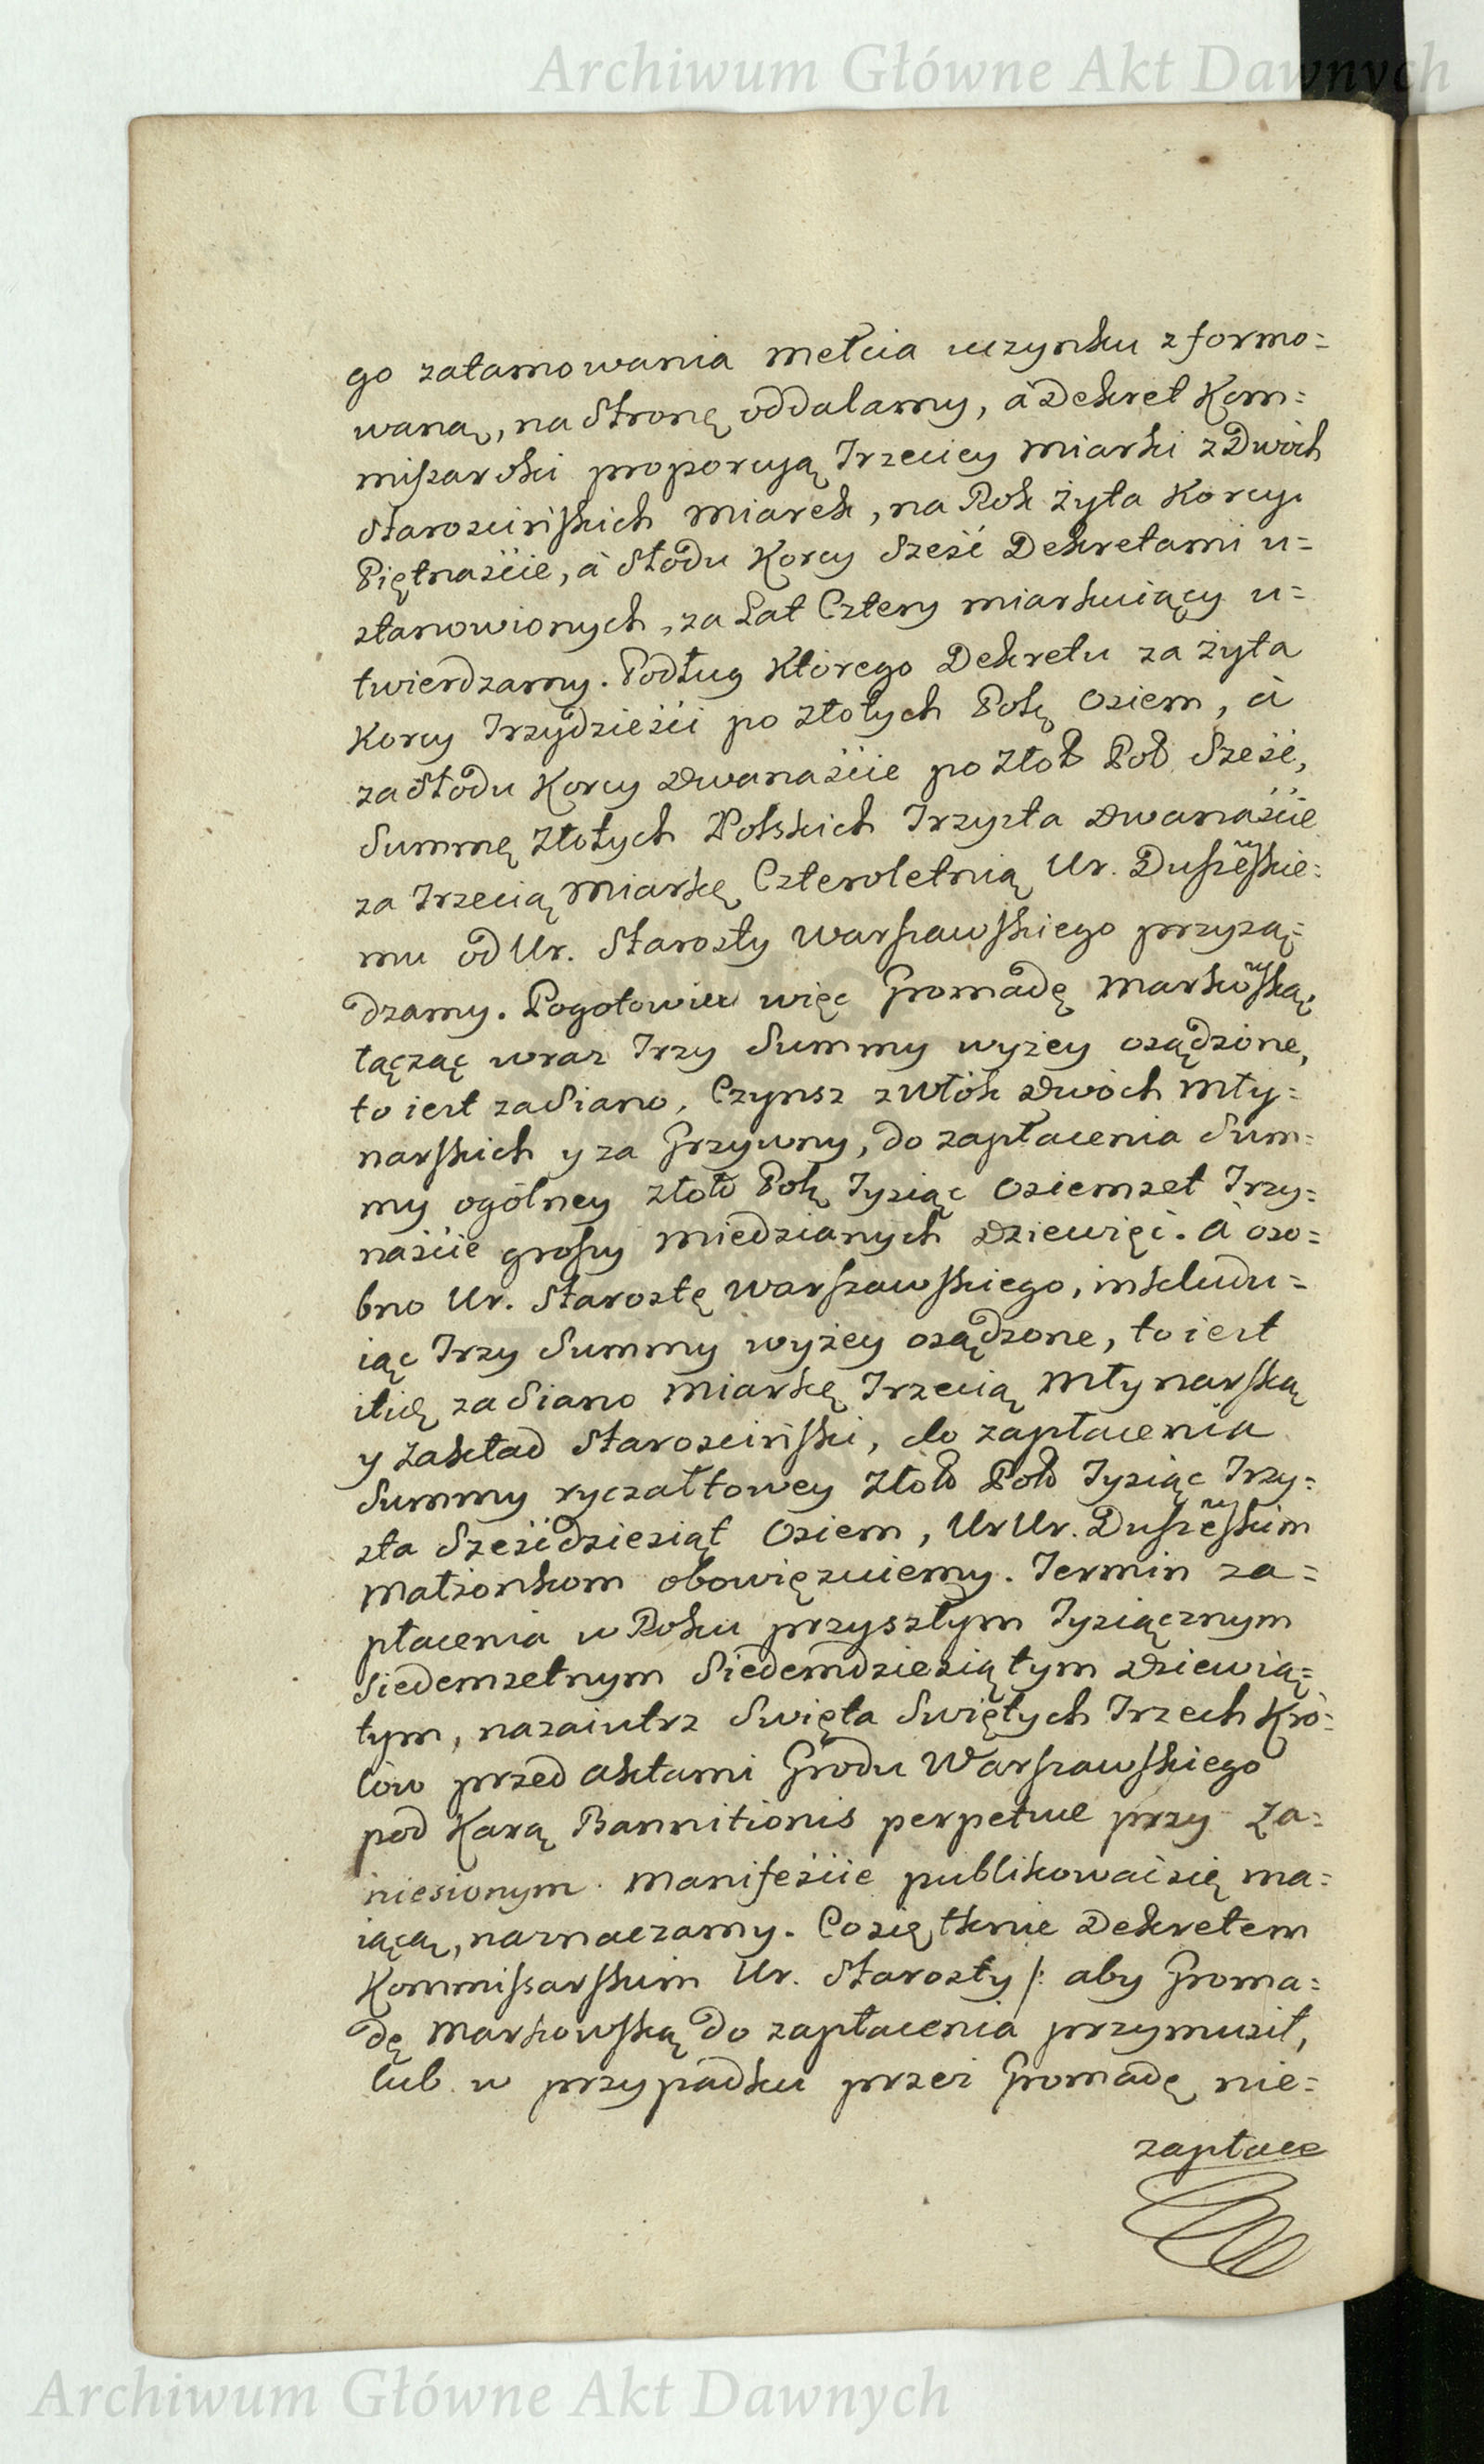 Archiwum Główne Akt Dawnych
go zatamowania mełcia uczynku zformo=
waną, na Stronę oddalamy, á Dekret Kom=
missarski proporcyą Trzeciey miarki z Dwóch
Starościńskich miarek, na Rok żyta Korcy
Piętnaście, á Słodu Korcy Sześć Dekretami u=
stanowionych, za Lat Cztery miarkuiący u=
twierdzamy. Podług Którego Dekretu za żyta
Korcy Trzydzieści po złotych Polę Osiem, á
za Słodu Korcy Dwanaście po Złot Pol Sześć,
Summę Złotych Polskich Trzysta Dwanaście
za Trzecią Miarkę Czteroletnią Ur. Duszeskie=
mu od Ur. Starosty Warszawskiego przysą=
dzamy. Pogotowiu więc Gromadę Markoską,
łącząc wraz Trzy Summy wyżey osądzone,
to iest za Siano, Czynsz z Włók Dwóch Mły=
narskich y za Grzywny, do zapłacenia Sum=
my ogólney złot Polę Tysiąc Osiemset Trzy=
naście groszy miedzianych Dziewięć. A oso=
bno Ur. Starostę Warszawskiego, inkludu=
iąc Trzy Summy wyżey osądzone, to iest
iłłę za Siano Miarkę Trzecią Młynarską
y Zakład Starościński, do zapłacenia
Summy ryczałtowey Złot Pol Tysiąc Trzy=
sta Sześćdziesiąt Osiem, Ur Ur. Duszeskim
Małżonkom obowięzuiemy. Termin za=
płacenia w Roku przyszłym Tysiącznym
Siedemsetnym Siedemdziesiątym Dziewią=
tym, nazaiutrz Święta Świętych Trzech Kró=
lów przed Aktami Grodu Warszawskiego
pod Karą Bannitionis perpetuæ przy Za=
niesionym Manifeście publikować się ma=
iącą, naznaczamy. Co się tknie Dekretem
Kommissarskim Ur. Starosty /: aby Groma=
dę Markowską do zapłacenia przymusił,
lub w przypadku przez Gromadę nie=
zapłace
Archiwum Główne Akt Dawnych